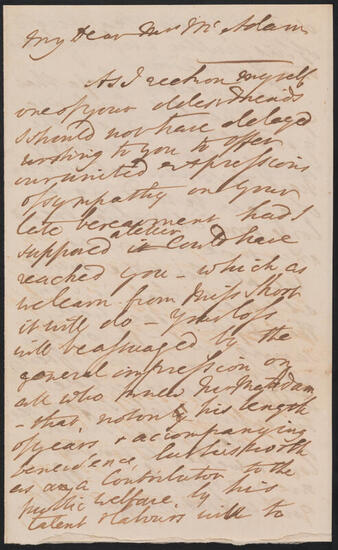 My Dear Mrs McAdam
As I reckon myself
one of your oldest friends
I should not have delayed
writing to you to offer
our united expressions
of sympathy on your
late bereavement had I
supposed a letter could have
reached you - which as
we learn from Miss
it will do - your loss
will be assuaged by the
general impression on
all who knew Mr McAdam
- that, not only his length
of years, & accompanying
benevolence, but his worth
as a Contributor to the
public welfare by his
talent & labours will to